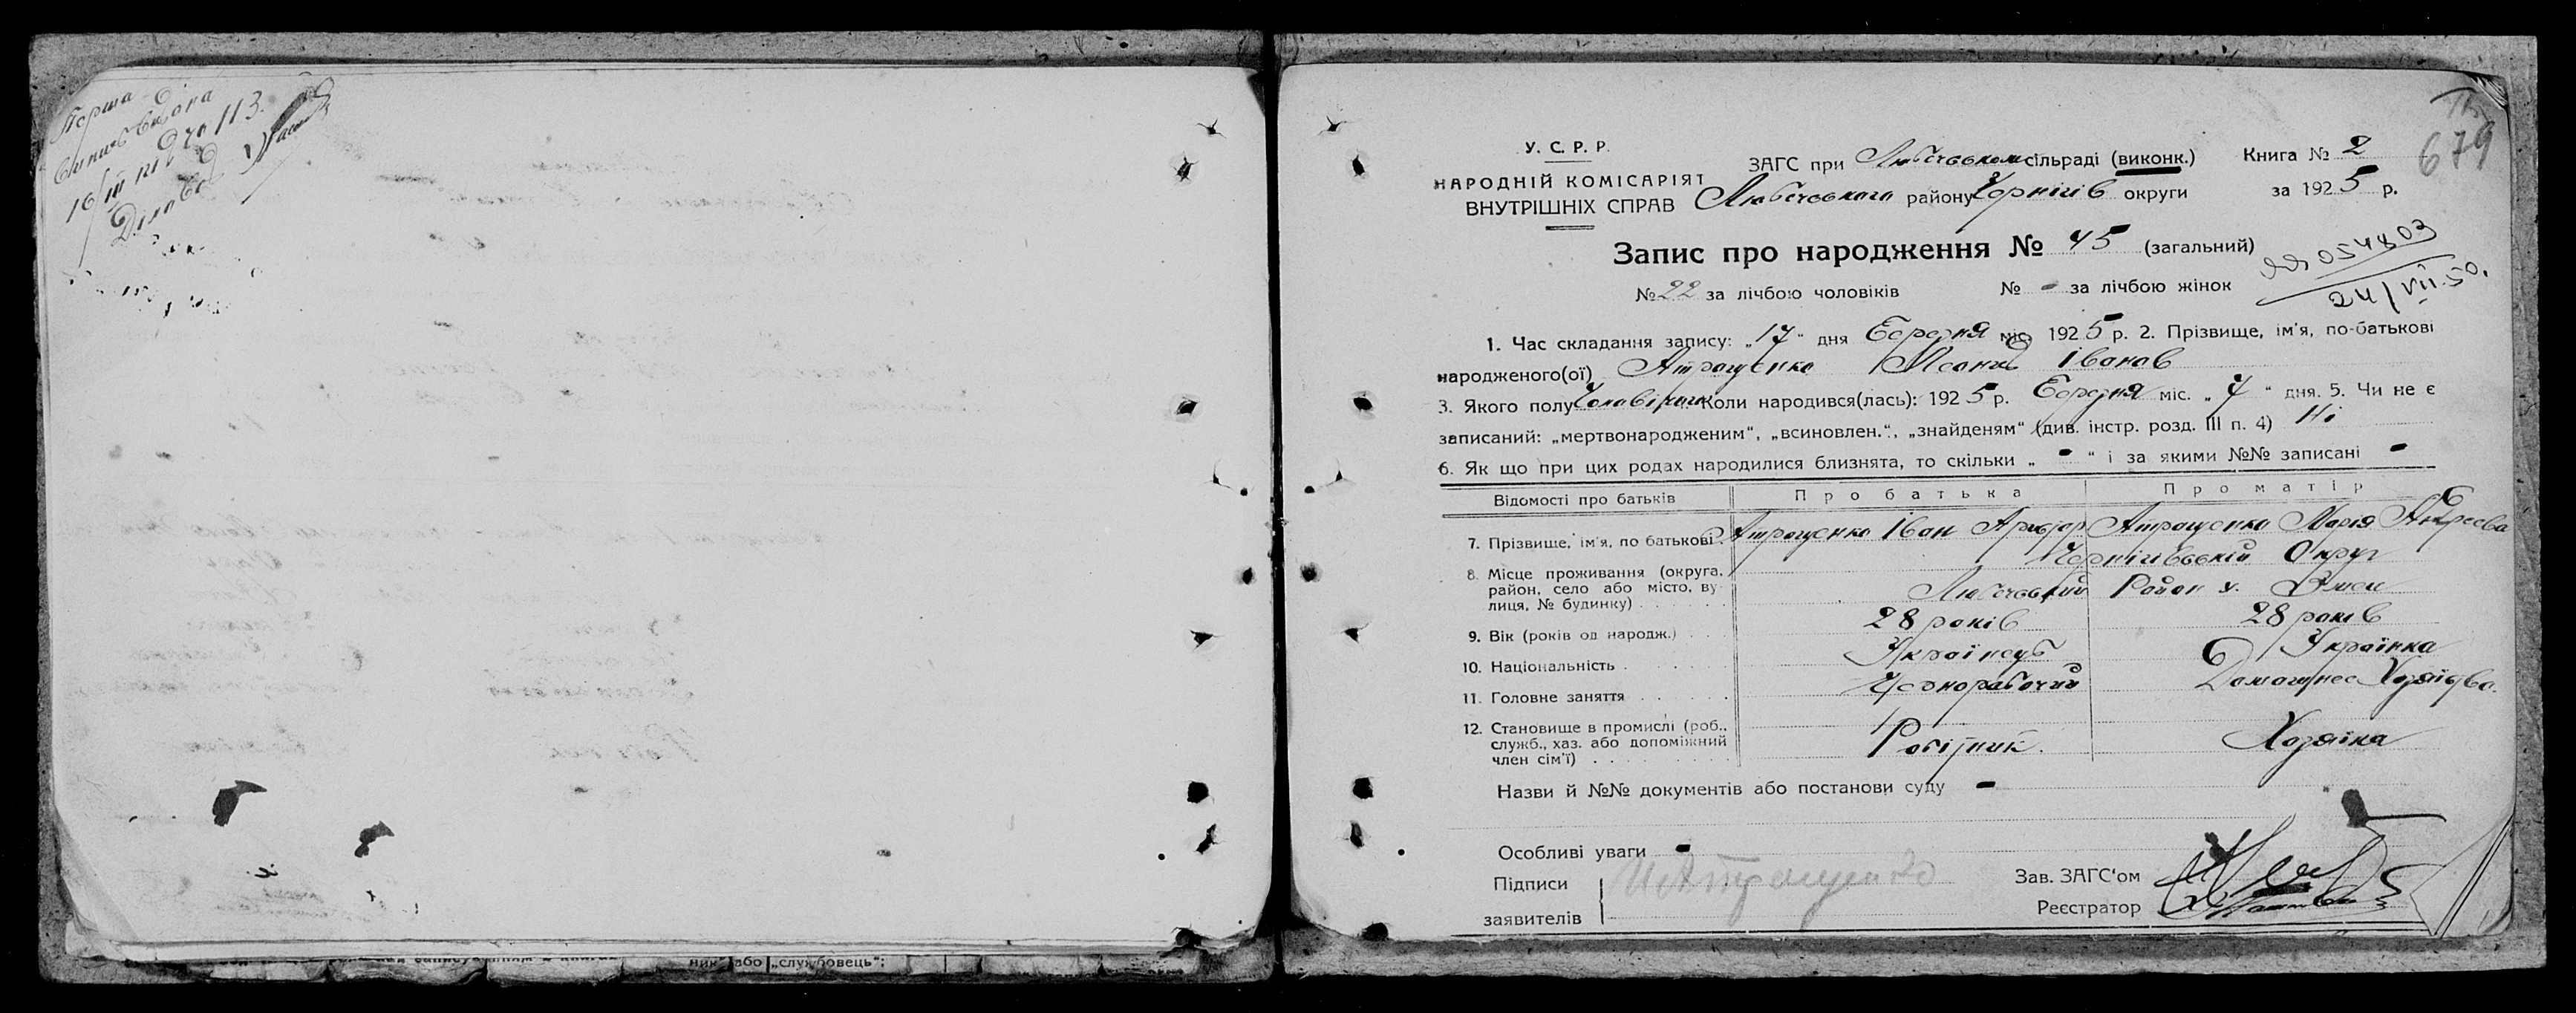 Перша
16/III 127 р 113.
679
У. С. Р. Р.
НАРОДНІЙ КОМІСАРІЯТ
ВНУТРІШНІХ СПРАВ
ЗАГС при Любечському сільраді (виконк.) Книга № 2
Любечського району Чернігів округи за 1925 р.
Запис про народження № 45 (загальний)
054803
24/VII.50.
№ 22 за лічбою чоловіків № - за лічбою жінок
1. Час складання запису: „17“ дня Березня міс. 1925 р. 2. Прізвище, ім'я, по-батькові
народженого(ої) Атрощенко Леонид Іванов
3. Якого полу Коли народився(лась): 1925 р. Березня міс. „7“ дня. 5. Чи не є
записаний: „мертвонародженим“, „всиновлен.“, „знайденям“ (див. інстр. розд. III п. 4) Ні
6. Як що при цих родах народилися близнята, то скільки „-“ і за якими №№ записані -
Відомості про батьків Про батька Про матір
7. Прізвище, ім'я, по батькові . Атрощенко Іван Атрощенко Марія Андреєва
Чернігівський Округ
8. Місце проживання (округа,
район, село або місто, ву-
лиця, № будинку) . . . . . . Любечський Район х.
9. Вік (років од народж.) . . 28 років 28 років
10. Національність . . . . . Українець Українка
11. Головне заняття . . . . . Чернорабочий Домашнее Хозяїство.
12. Становище в промислі (роб.,
служб., хаз. або допоміжний
член сім'ї) . . . . . . . . . Робітник. Хозяїка
Назви й №№ документів або постанови суду -
Особливі уваги -
Підписи
заявителів
Атрощенко
Зав. ЗАГС'ом
Реєстратор
ник“ або „службовець“: